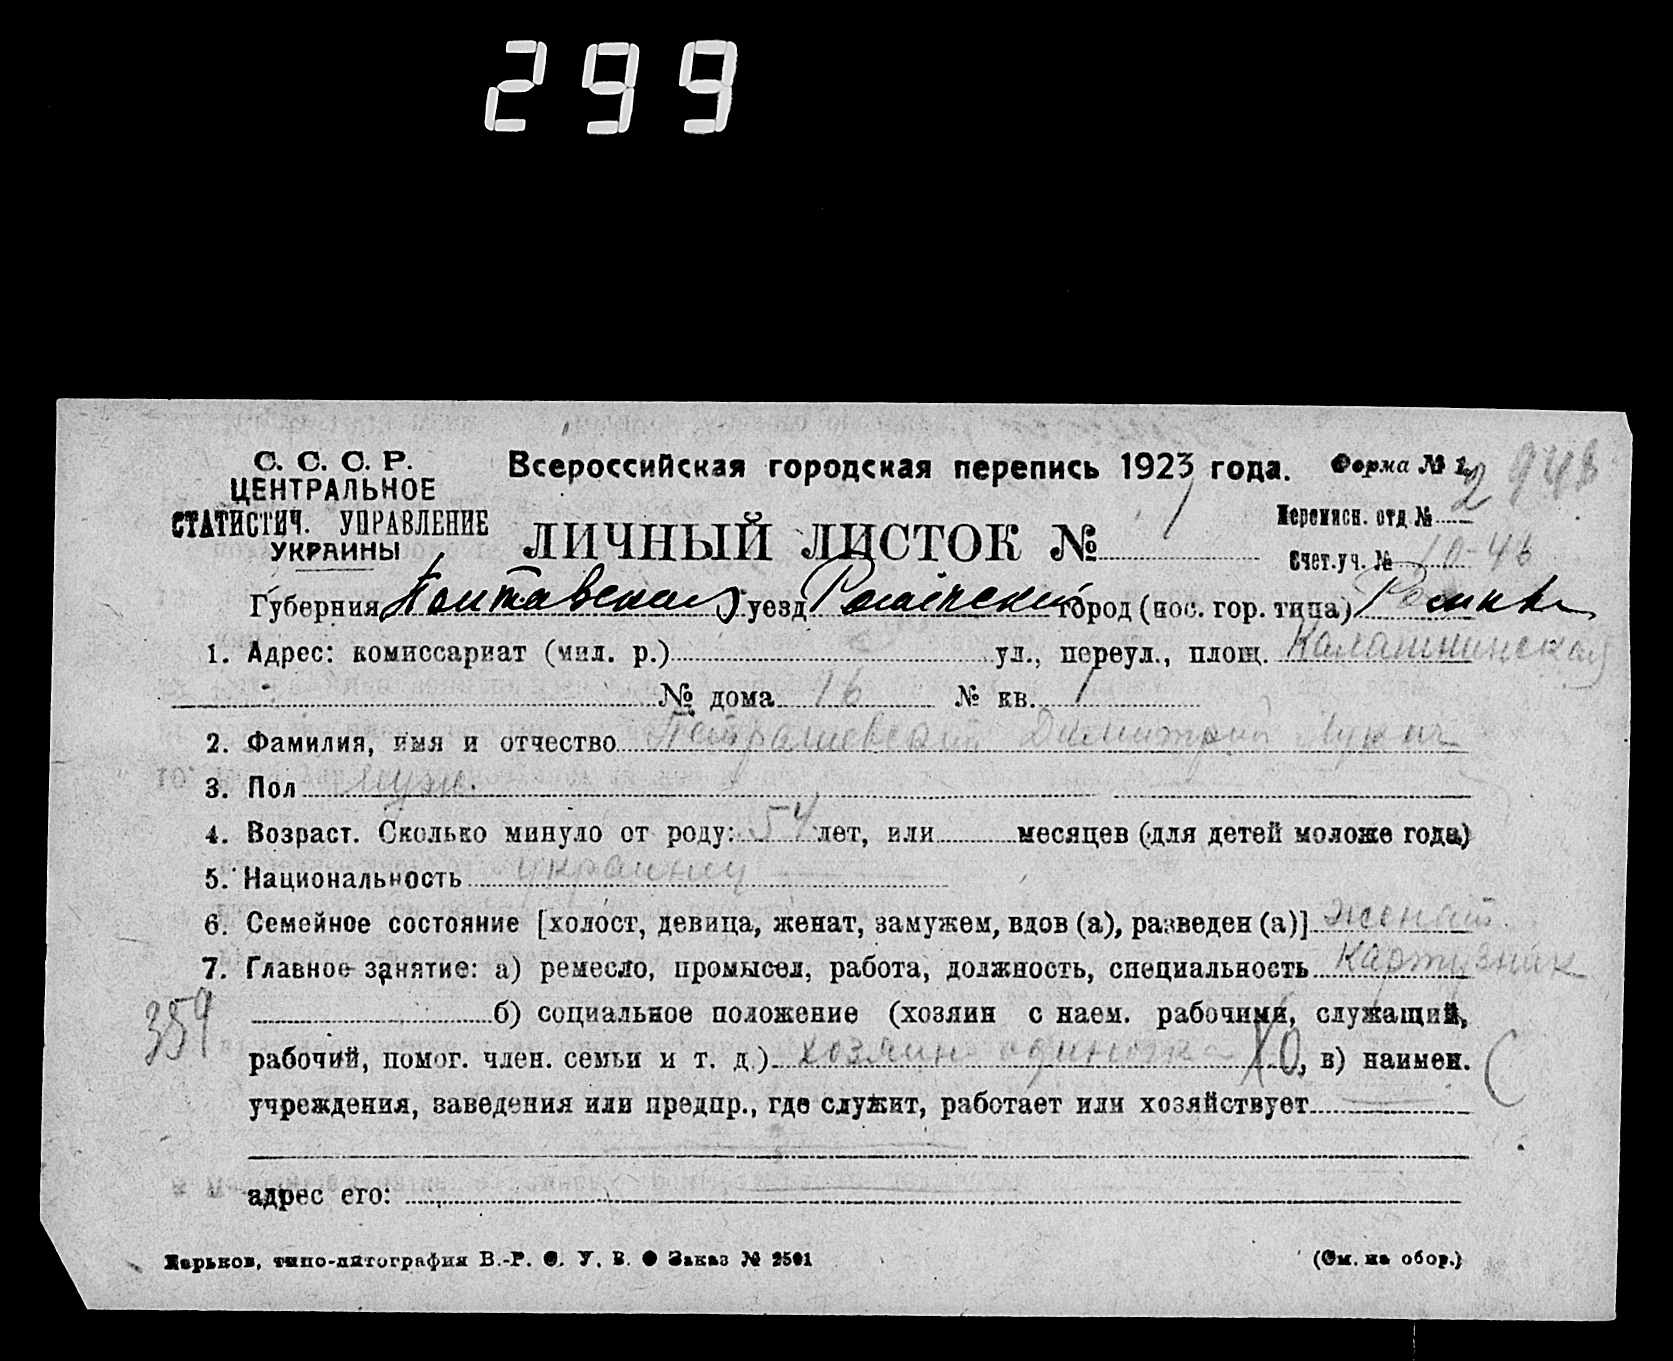 299
С. С. С. Р.
ЦЕНТРАЛЬНОЕ
СТАТИСТИЧ. УПРАВЛЕНИЕ
УКРАИНЫ
Всероссийская городская перепись 1923 года.
Форма № 1.
2 948
ЛИЧНЫЙ ЛИСТОК № 1
Переписн. отд. №
Счет. уч. № 10-46
Губерния Полтавская уезд Роменский город (пос. гор. типа) Ромны
1. Адрес: комиссариат (мил. р.) ул., переул., площ. Калашнинская
№ дома 16 № кв. 1
2. Фамилия, имя и отчество Петрашевский Димитрий Лукич
3. Пол муж.
4. Возраст. Сколько минуло от роду: 54 лет, или месяцев (для детей моложе года)
5. Национальность украинец
6. Семейное состояние [холост, девица, женат, замужем, вдов (а), разведен (а)] женат
7. Главное занятие: а) ремесло, промысел, работа, должность, специальность картузник
359
б) социальное положение (хозяин с наем. рабочими, служащий,
рабочий, помог. член. семьи и т. д.) хозяин одиночка ХО, в) наимен.
учреждения, заведения или предпр., где служит, работает или хозяйствует
адрес его:
Харьков, типо-литография В.-Р. С. У. В. О Заказ № 2501
(См. на обор.)